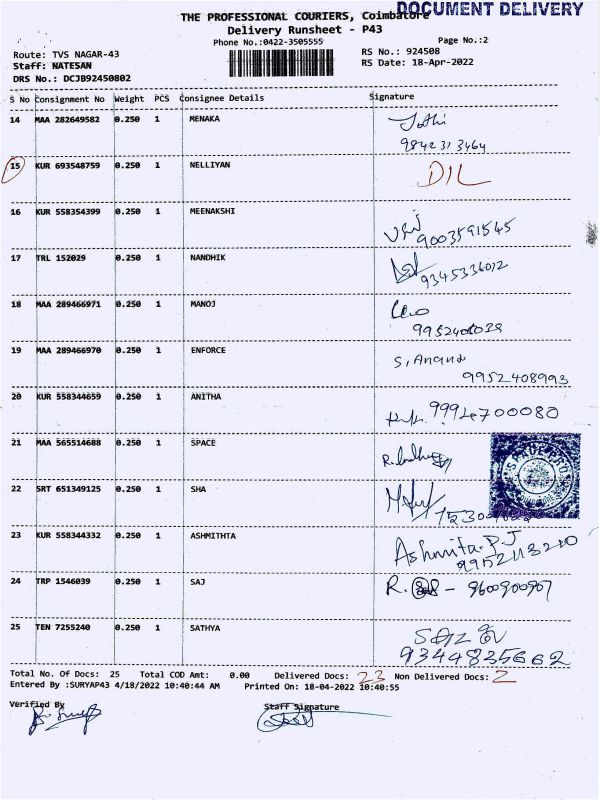 DOCUMENT DELIVERY
THE PROFESSIONAL COURIERS, Coimbatore
Delivery Runsheet - P43
Phone No.:0422-3505555
Page No.:2
Route: TVS NAGAR-43
RS No.: 924508
Staff: NATESAN
RS Date: 18-Apr-2022
DRS No.: DCJB92450802
S No Consignment No Weight PCS Consignee Details Signature
14 MAA 282649582 0.250 1 MENAKA
9842313464
15 KUR 693548759 0.250 1 NELLIYAN DIL
16 KUR 558354399 0.250 1 MEENAKSHI
9003591545
17 TRL 152029 0.250 1 NANDHIK
9345336012
18 MAA 289466971 0.250 1 MANOJ
19 MAA 289466970 0.250 1 ENFORCE S. Anand
9952408993
20 KUR 558344659 0.250 1 ANITHA
9994700080
21 MAA 565514688 0.250 1 SPACE
22 SRT 651349125 0.250 1 SHA
23 KUR 558344332 0.250 1 ASHMITHTA Ashmita.P.J
24 TRP 1546039 0.250 1 SAJ R.
25 TEN 7255240 0.250 1 SATHYA
9344835662
Total No. Of Docs: 25 Total COD Amt: 0.00 Delivered Docs: 23 Non Delivered Docs: 2
Entered By :SURYAP43 4/18/2022 10:40:44 AM Printed On: 18-04-2022 10:40:55
Verified By Staff Signature